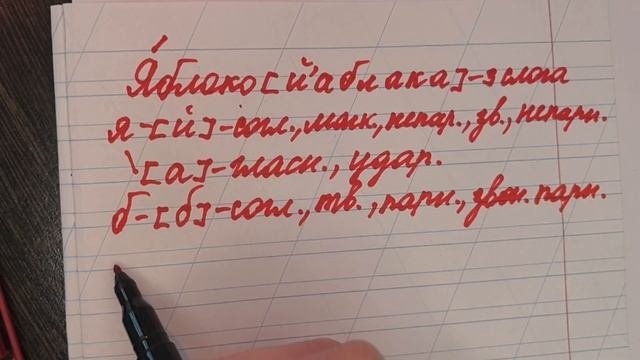 Яблоко [й'аблака] - 3 слога
я - [й'] - согл., мягк., непар., зв., непарн.
\ [а] - гласн., удар.
б - [б] - согл., тв., парн., звон. парн.